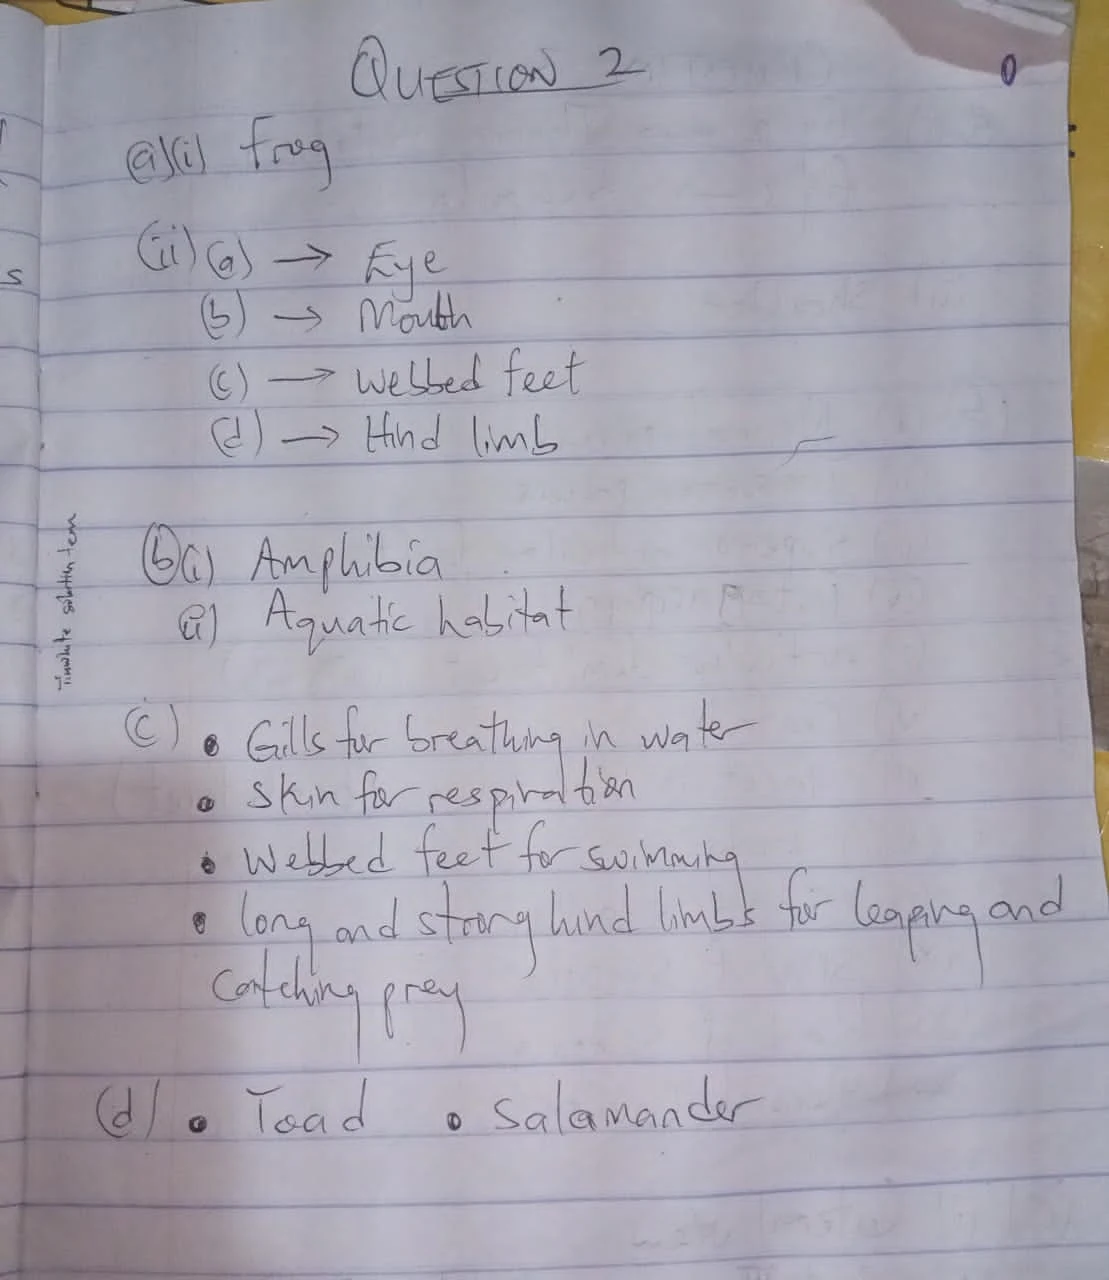 QUESTION 2
(a)(i) Frog
(ii) (a) → Eye
(b) → Mouth
(c) → Webbed feet
(d) → Hind limb
(b)(i) Amphibia
(ii) Aquatic habitat
(c) • Gills for breathing in water
• Skin for respiration
• Webbed feet for swimming
• long and strong hind limbs for leaping and
catching prey
(d) • Toad • Salamander
solution team
s